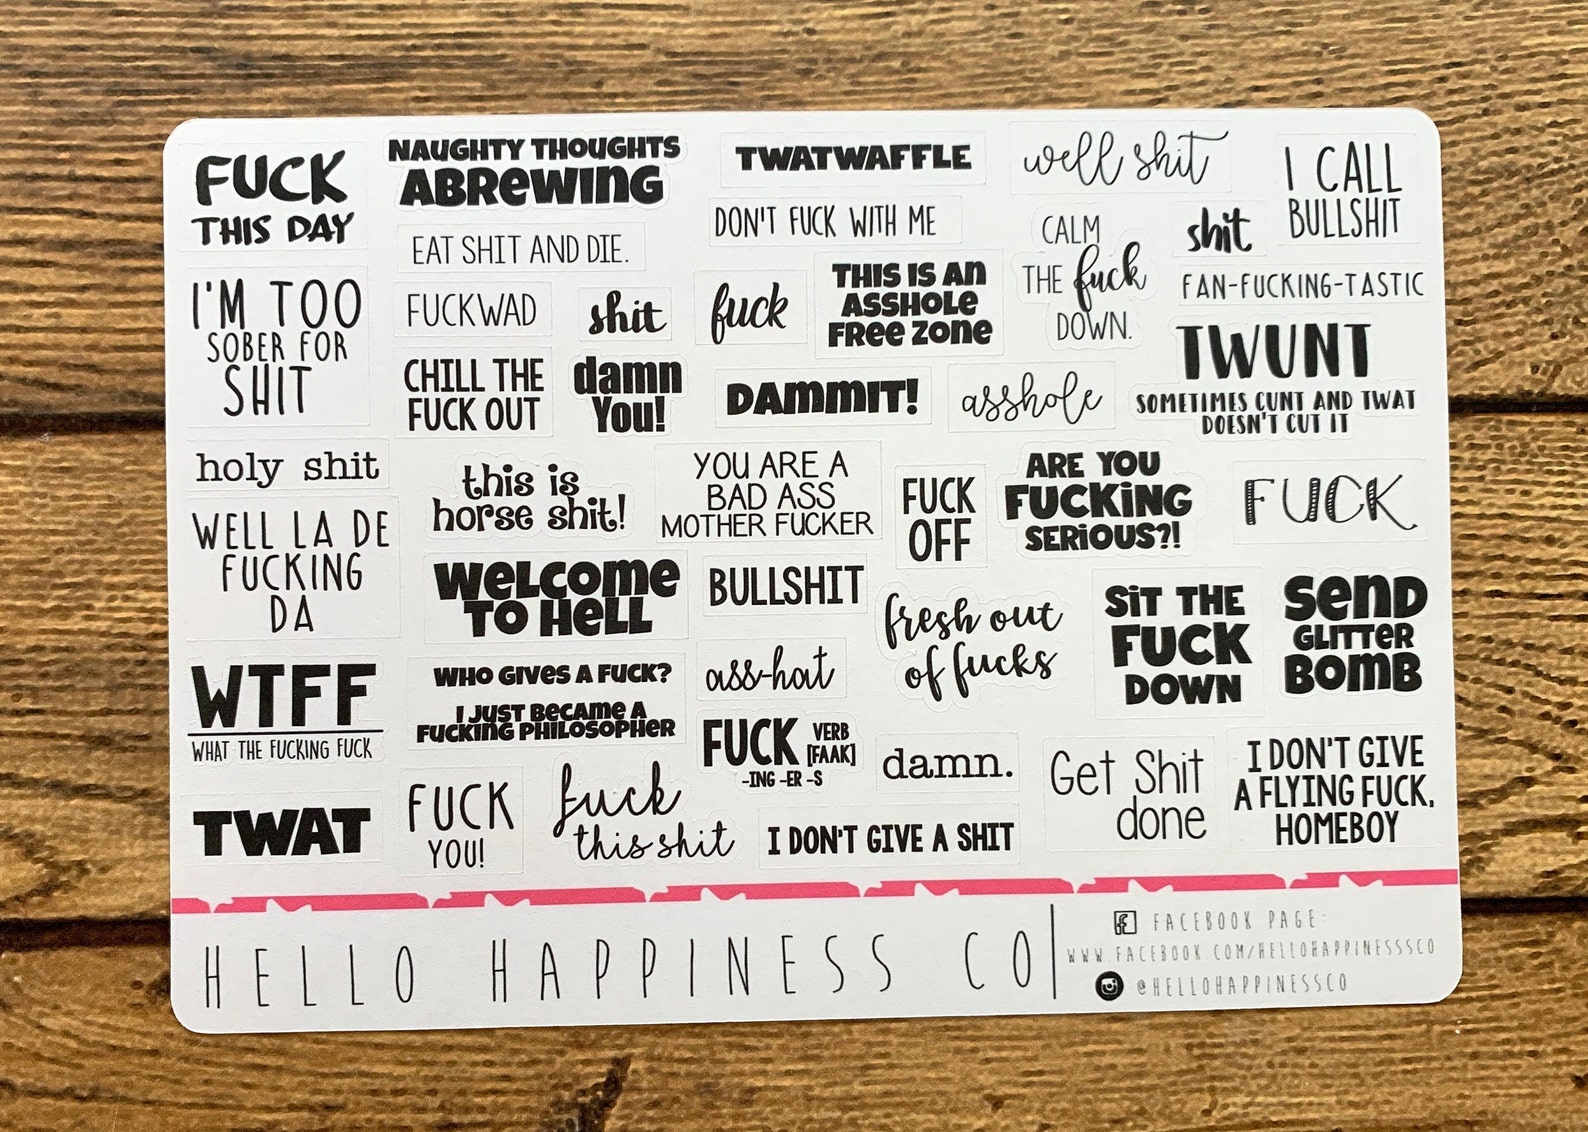 FUCK
THIS DAY
NAUGHTY THOUGHTS
ABREWING
TWATWAFFLE
well shit
I CALL
BULLSHIT
EAT SHIT AND DIE.
DON'T FUCK WITH ME
CALM
THE fuck
DOWN.
shit
I'M TOO
SOBER FOR
SHIT
FUCKWAD
shit
fuck
THIS IS AN
ASSHOLE
FREE ZONE
FAN-FUCKING-TASTIC
CHILL THE
FUCK OUT
damn
You!
DAMMIT!
asshole
TWUNT
SOMETIMES CUNT AND TWAT
DOESN'T CUT IT
holy shit
this is
horse shit!
YOU ARE A
BAD ASS
MOTHER FUCKER
FUCK
OFF
ARE YOU
FUCKING
SERIOUS?!
FUCK
WELL LA DE
FUCKING
DA
WELCOME
TO HELL
BULLSHIT
fresh out
of fucks
SIT THE
FUCK
DOWN
SEND
GLITTER
BOMB
WTFF
WHAT THE FUCKING FUCK
WHO GIVES A FUCK?
I JUST BECAME A
FUCKING PHILOSOPHER
ass-hat
FUCK VERB
[FAAK]
-ING -ER -S
damn.
Get Shit
done
I DON'T GIVE
A FLYING FUCK,
HOMEBOY
TWAT
FUCK
YOU!
fuck
this shit
I DON'T GIVE A SHIT
HELLO HAPPINESS CO
FACEBOOK PAGE:
WWW.FACEBOOK.COM/HELLOHAPPINESSSCO
@HELLOHAPPINESSCO